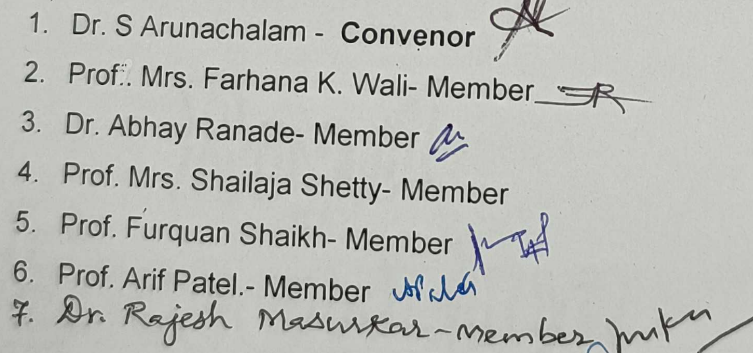 1. Dr. S Arunachalam - Convenor
2. Prof.. Mrs. Farhana K. Wali- Member
3. Dr. Abhay Ranade- Member
4. Prof. Mrs. Shailaja Shetty- Member
5. Prof. Furquan Shaikh- Member
6. Prof. Arif Patel.- Member
7. Dr. Rajesh Masurkar - Member